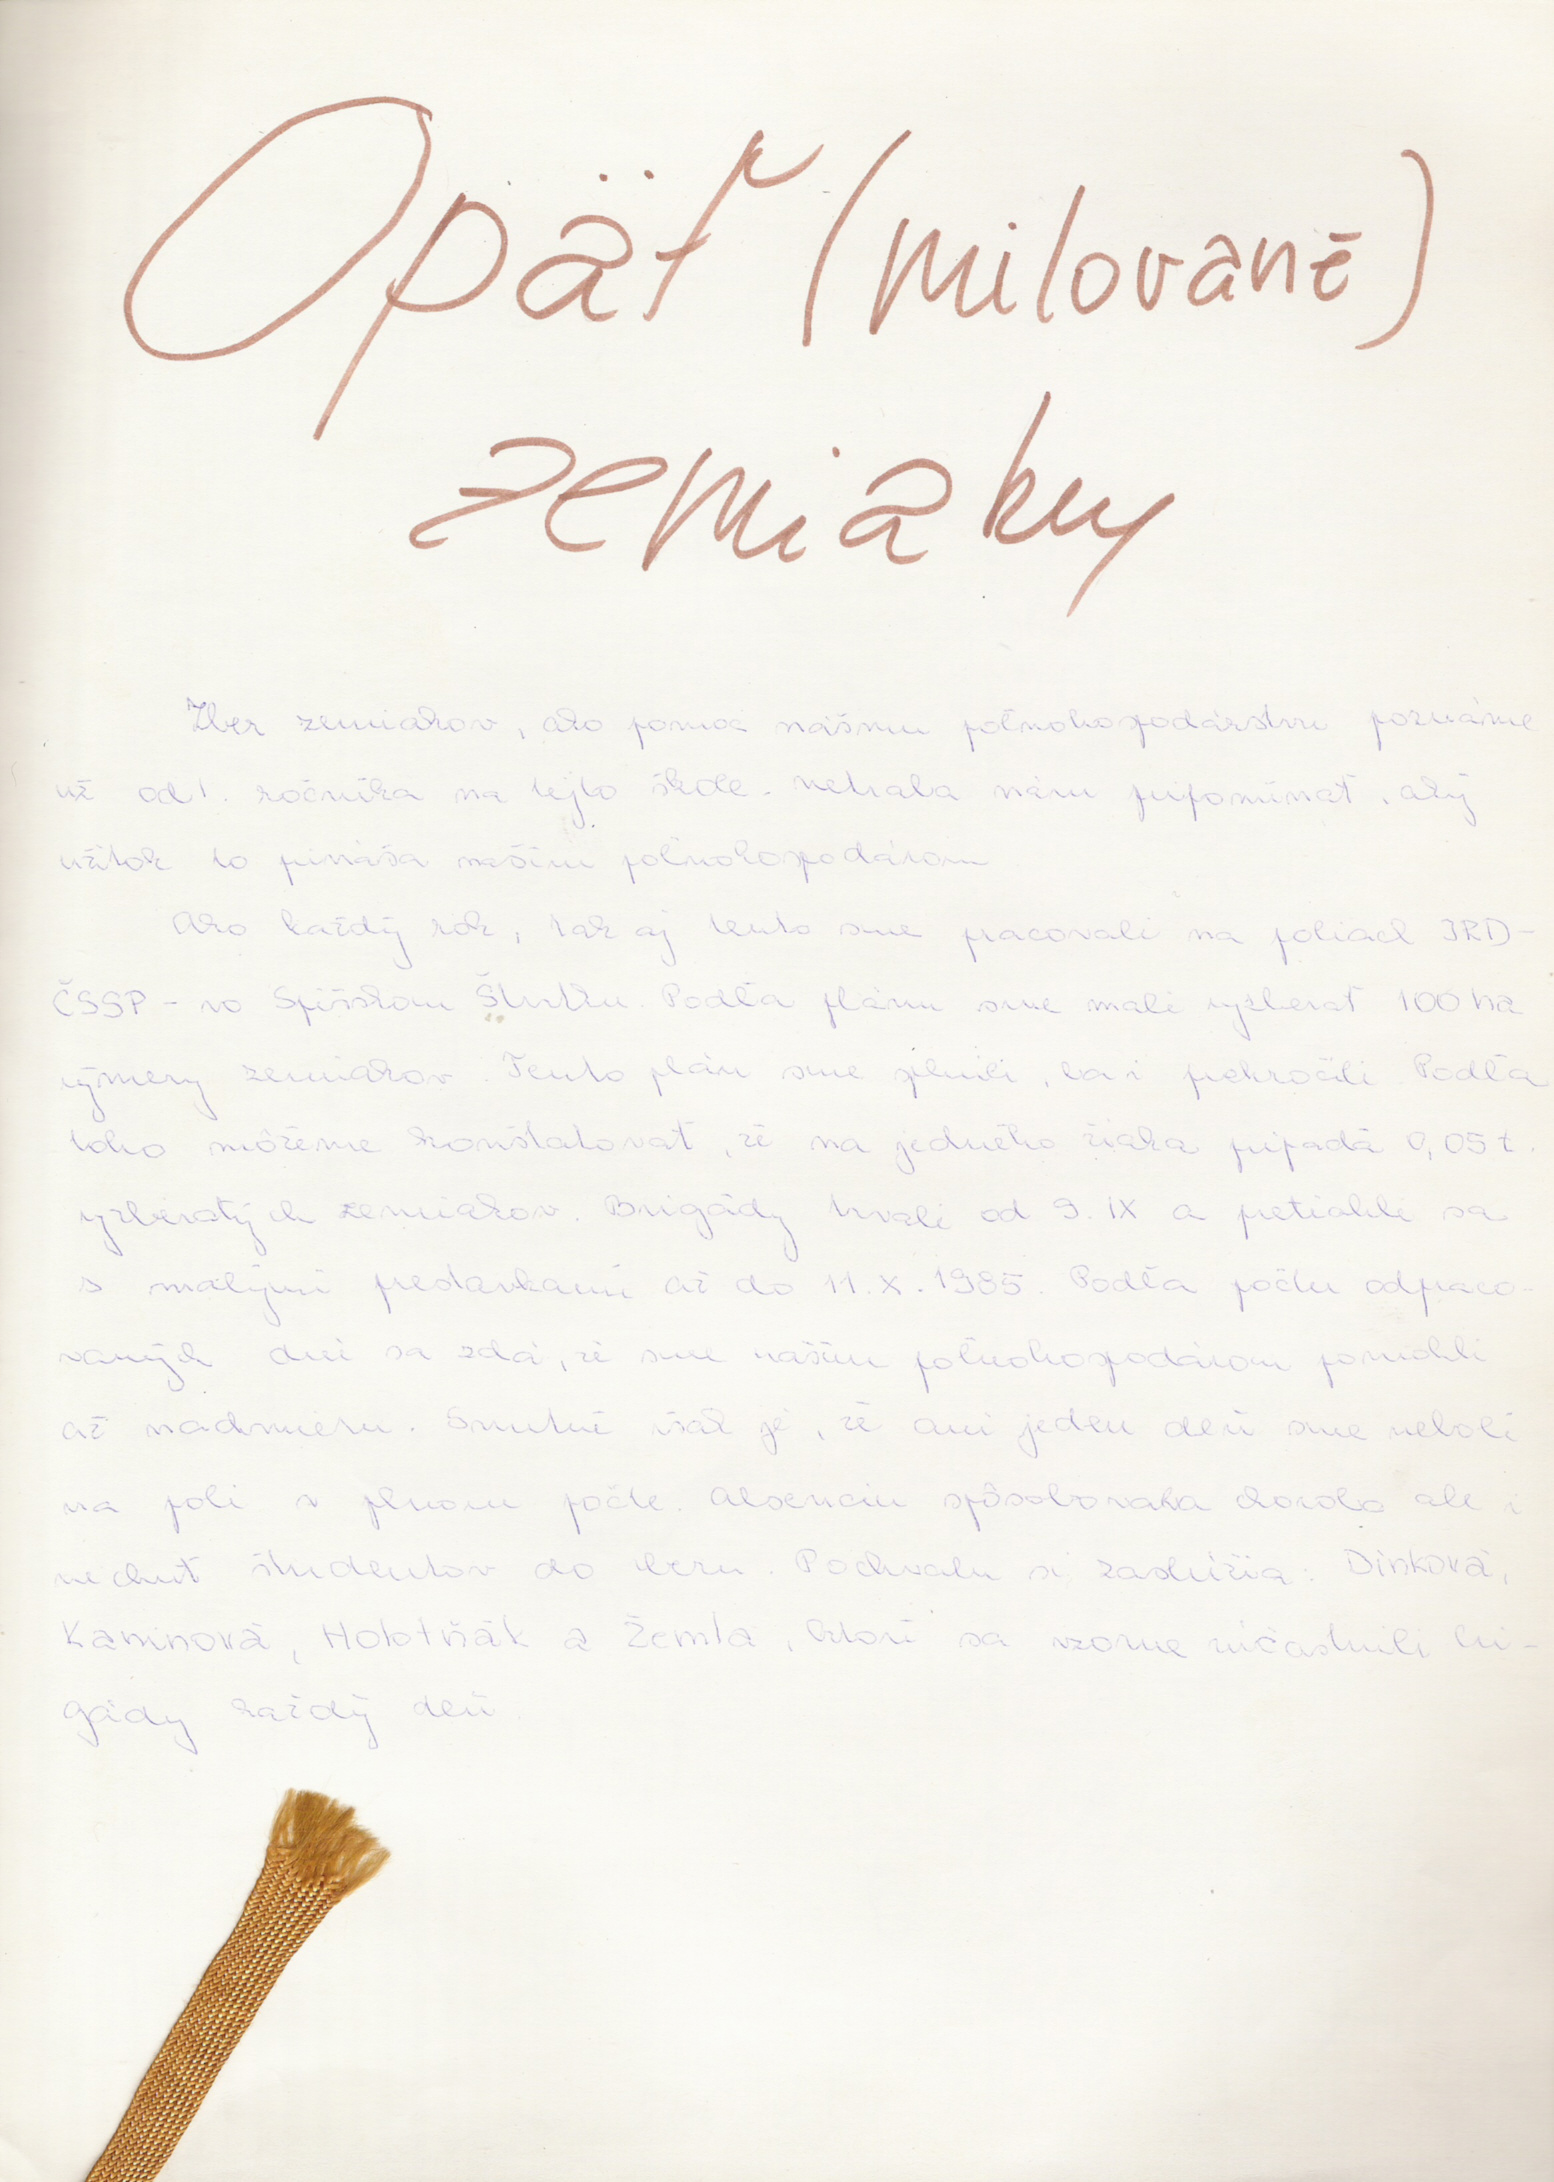 Opäť (milované)
zemiaky
Zber zemiakov, ako pomoc nášmu poľnohospodárstvu poznáme
už od 1. ročníka na tejto škole. Netreba nám pripomínať, aký
úžitok to prináša našim poľnohospodárom
Ako každý rok, tak aj tento sme pracovali na poliach JRD -
ČSSP - vo Spišskom Štvrtku. Podľa plánu sme mali vyzberať 100 ha
výmery zemiakov. Tento plán sme splnili, ba i prekročili. Podľa
toho môžeme konštatovať, že na jedného žiaka pripadá 0,05 t.
vyzberatých zemiakov. Brigády trvali od 9. IX a pretiahli sa
s malými prestávkami až do 11. X. 1985. Podľa počtu odpraco-
vaných dní sa zdá, že sme našim poľnohospodárom pomohli
až nadmieru. Smutné však je, že ani jeden deň sme neboli
na poli v plnom počte. Absenciu spôsobovala choroba ale i
nechuť študentov do zberu. Pochvalu si zaslúžia: Dinková,
Kaninová, Holotňák a Žemla, ktorí sa vzorne zúčastnili bri-
gády každý deň